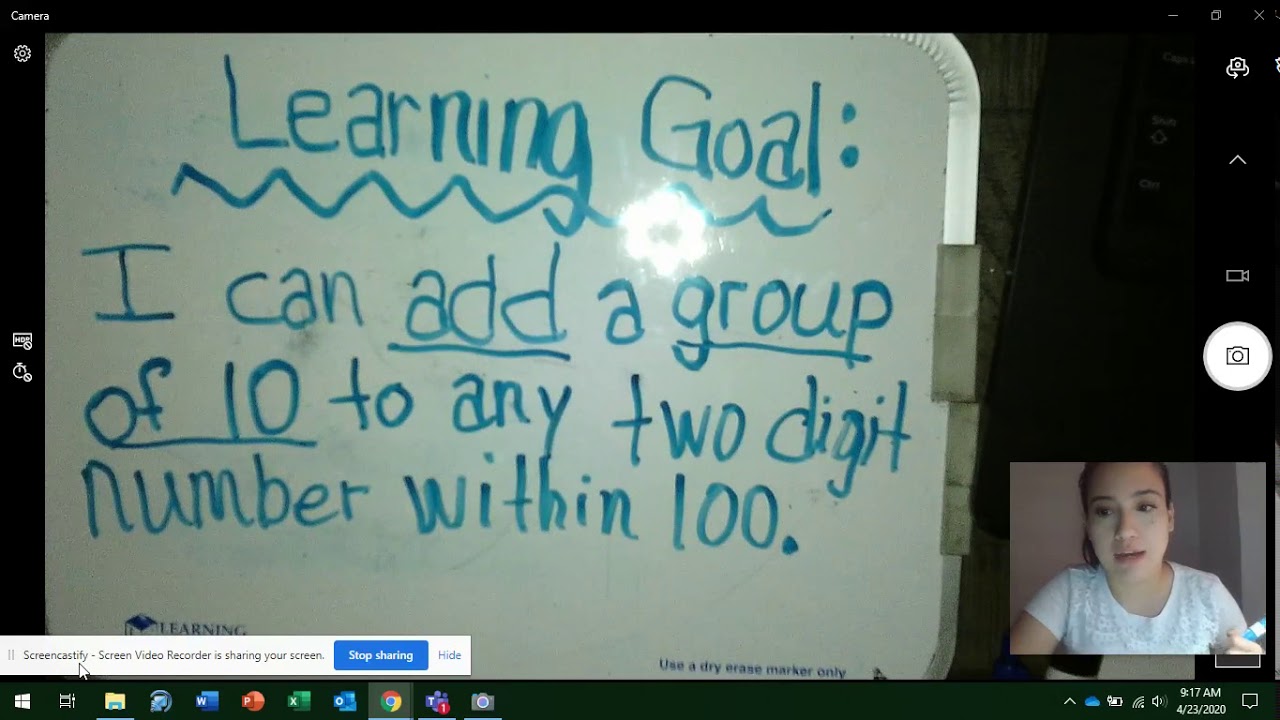 Camera
Learning Goal:
I can add a group
of 10 to any two digit
number within 100.
LEARNING
Use a dry erase marker only
Caps
Shift
Ctrl
HDR
Screencastify - Screen Video Recorder is sharing your screen.
Stop sharing
Hide
1
9:17 AM
4/23/2020